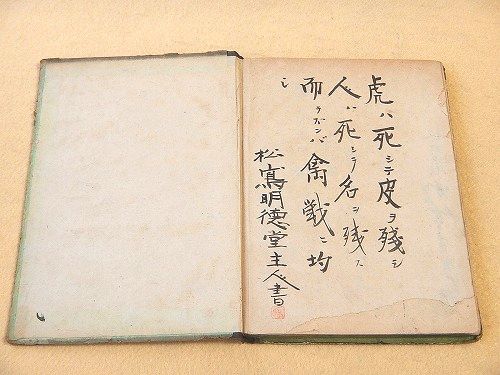 虎ハ死シテ皮ヲ残シ
人ハ死シテ名ヲ残ス
而ラズンバ禽獣ニ均
シ
松嶌明德堂主人書